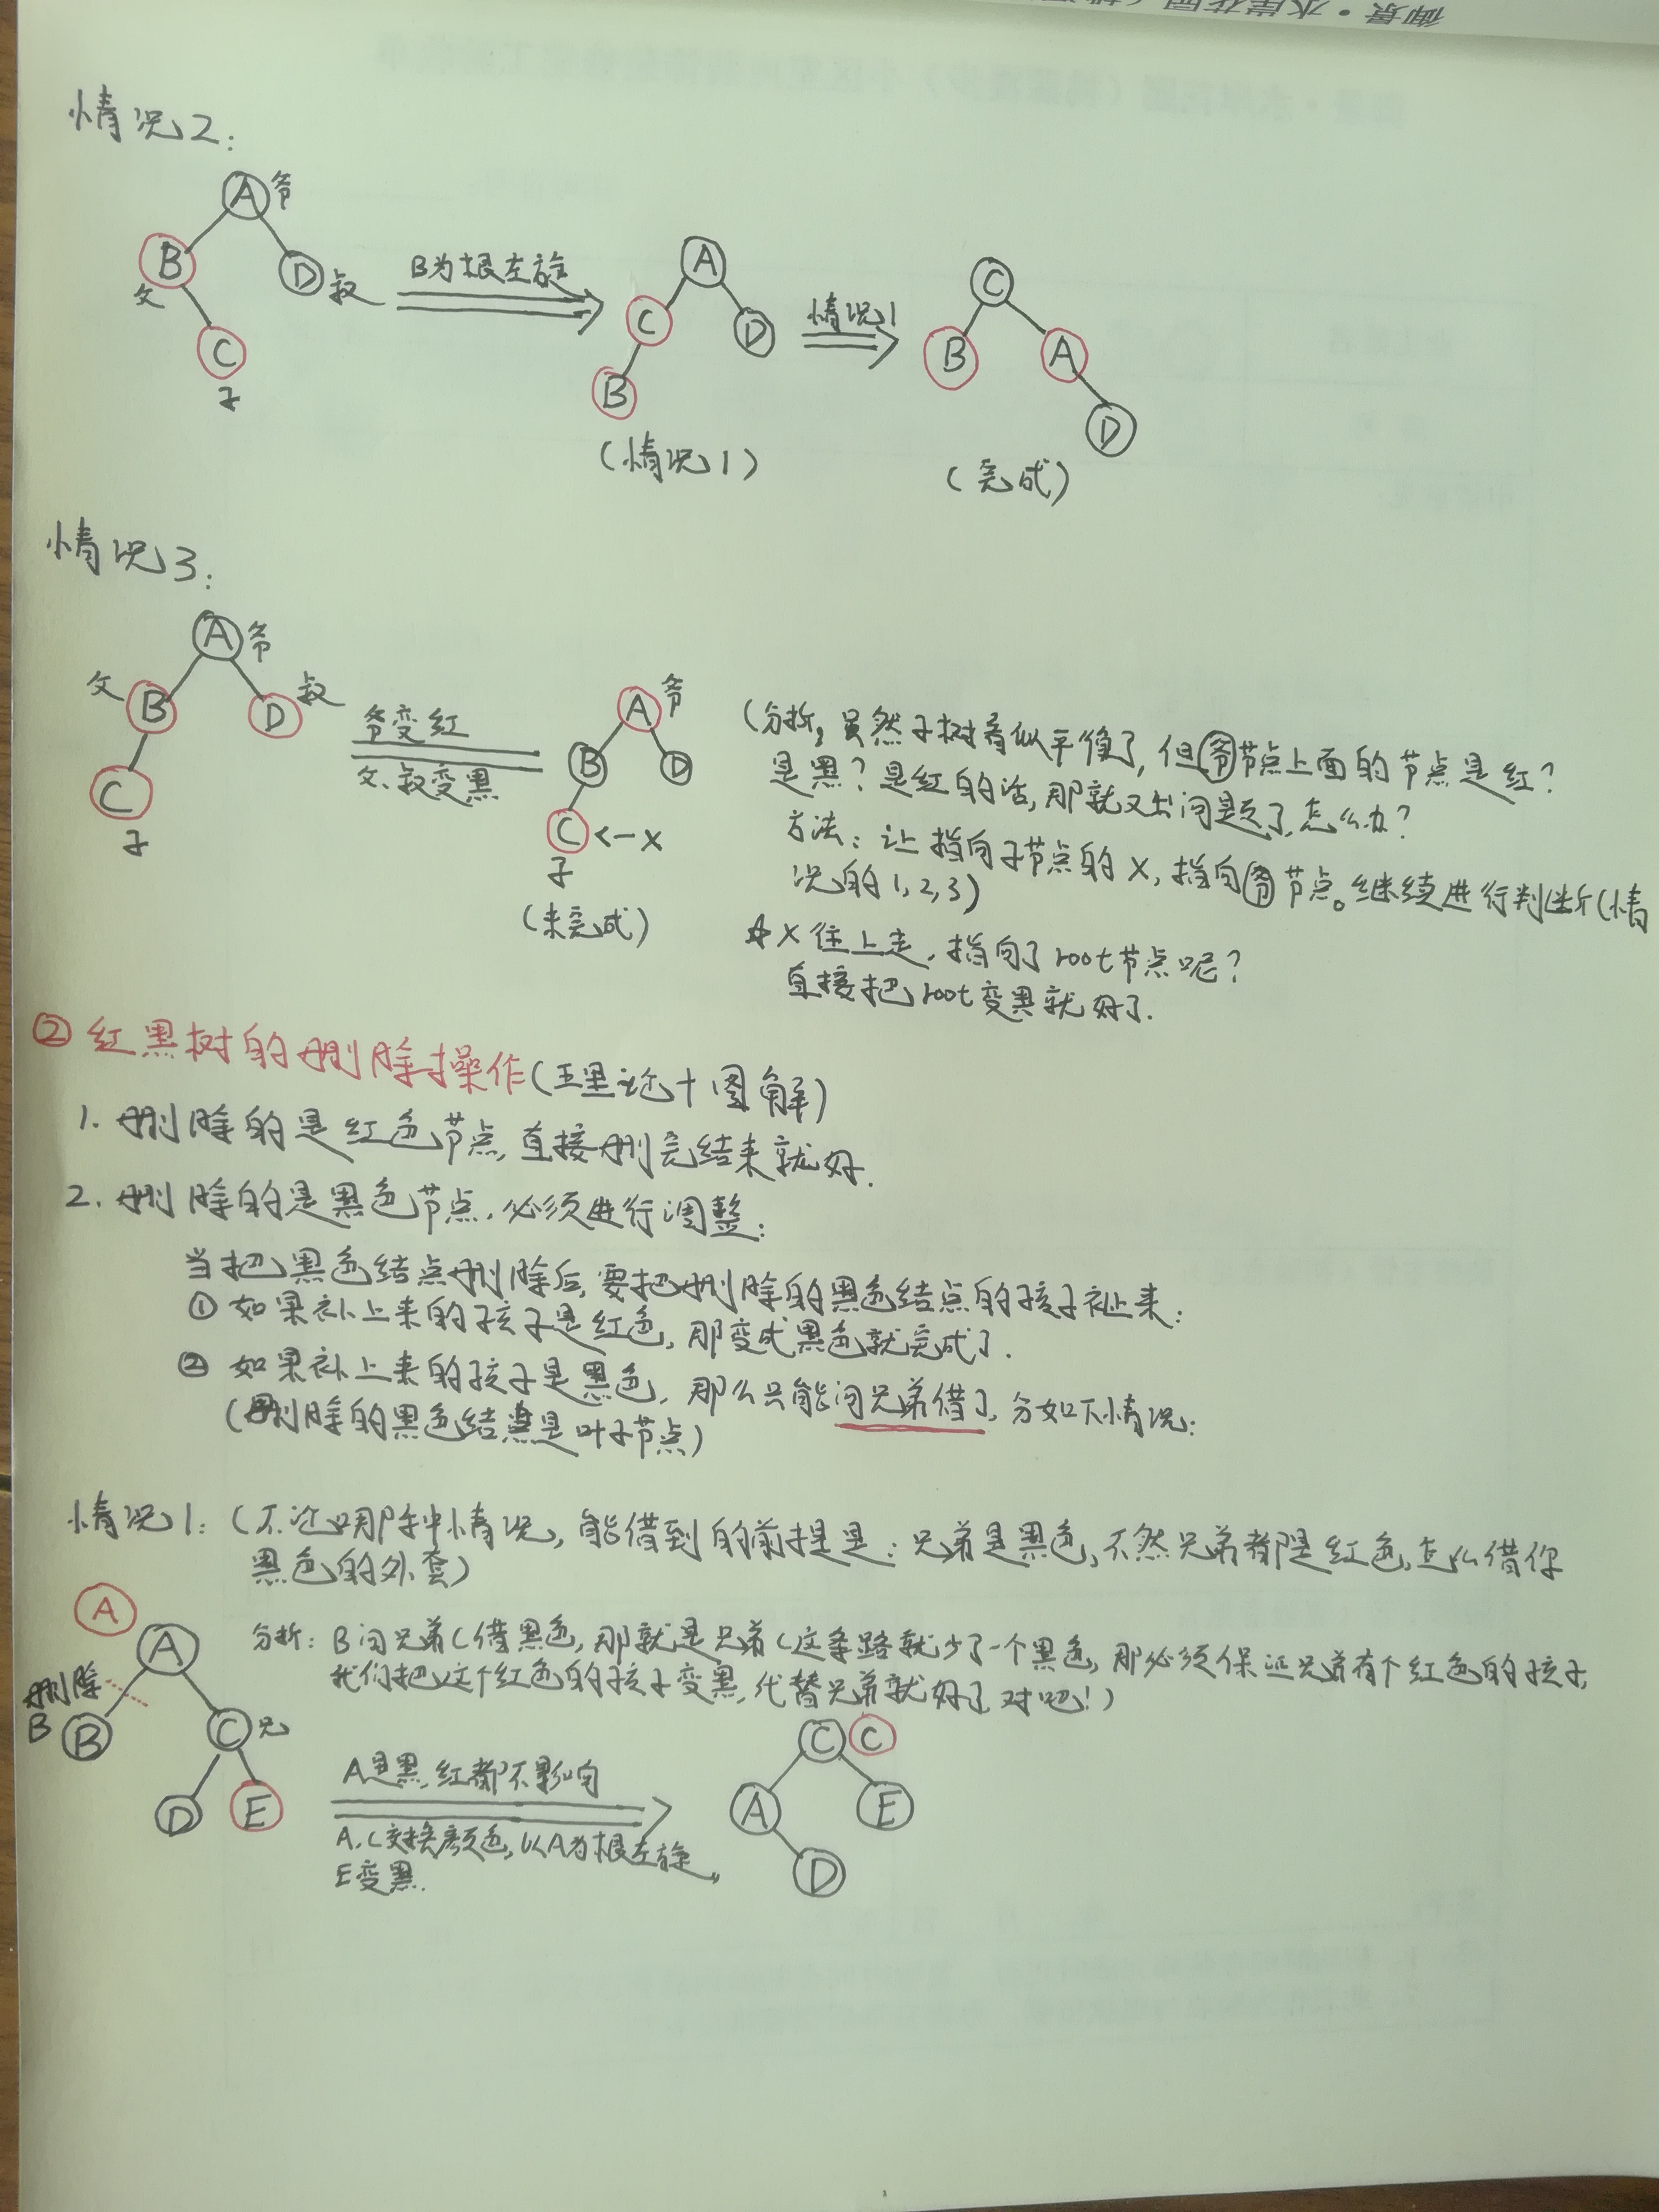 御景·水岸花园
情况2:
A 爷
B 父
D 叔
C 子
B为根左旋
A
C
D
B
(情况1)
情况1
C
B
A
D
(完成)
情况3:
A 爷
父 B
D 叔
C
子
爷变红
父、叔变黑
A 爷
B
D
C <-X
子
(未完成)
(分析,虽然子树看似平衡了,但爷节点上面的节点是红?
是黑?是红的话,那就又出问题了,怎么办?
方法:让指向子节点的X,指向爷节点。继续进行判断(情
况的1,2,3)
☆X往上走,指向了root节点呢?
直接把root变黑就好了.
② 红黑树的删除操作(理论+图解)
1. 删除的是红色节点,直接删完结束就好.
2. 删除的是黑色节点,必须进行调整:
当把黑色结点删除后,要把删除的黑色结点的孩子补上来:
① 如果补上来的孩子是红色,那变成黑色就完成了.
② 如果补上来的孩子是黑色,那么只能问兄弟借了,分如下情况:
(删除的黑色结点是叶子节点)
情况1:(不论哪种情况,能借到的前提是:兄弟是黑色,不然兄弟都是红色,怎么借你
黑色的外套)
A
A
分析:B问兄弟C借黑色,那就是兄弟C这条路就少了一个黑色,那必须保证兄弟有个红色的孩子,
我们把这个红色的孩子变黑,代替兄弟就好了,对吧!)
删除
B
B
C 兄
D
E
A是黑,红都不影响
A,C交换颜色,以A为根左旋,
E变黑.
C C
A
E
D